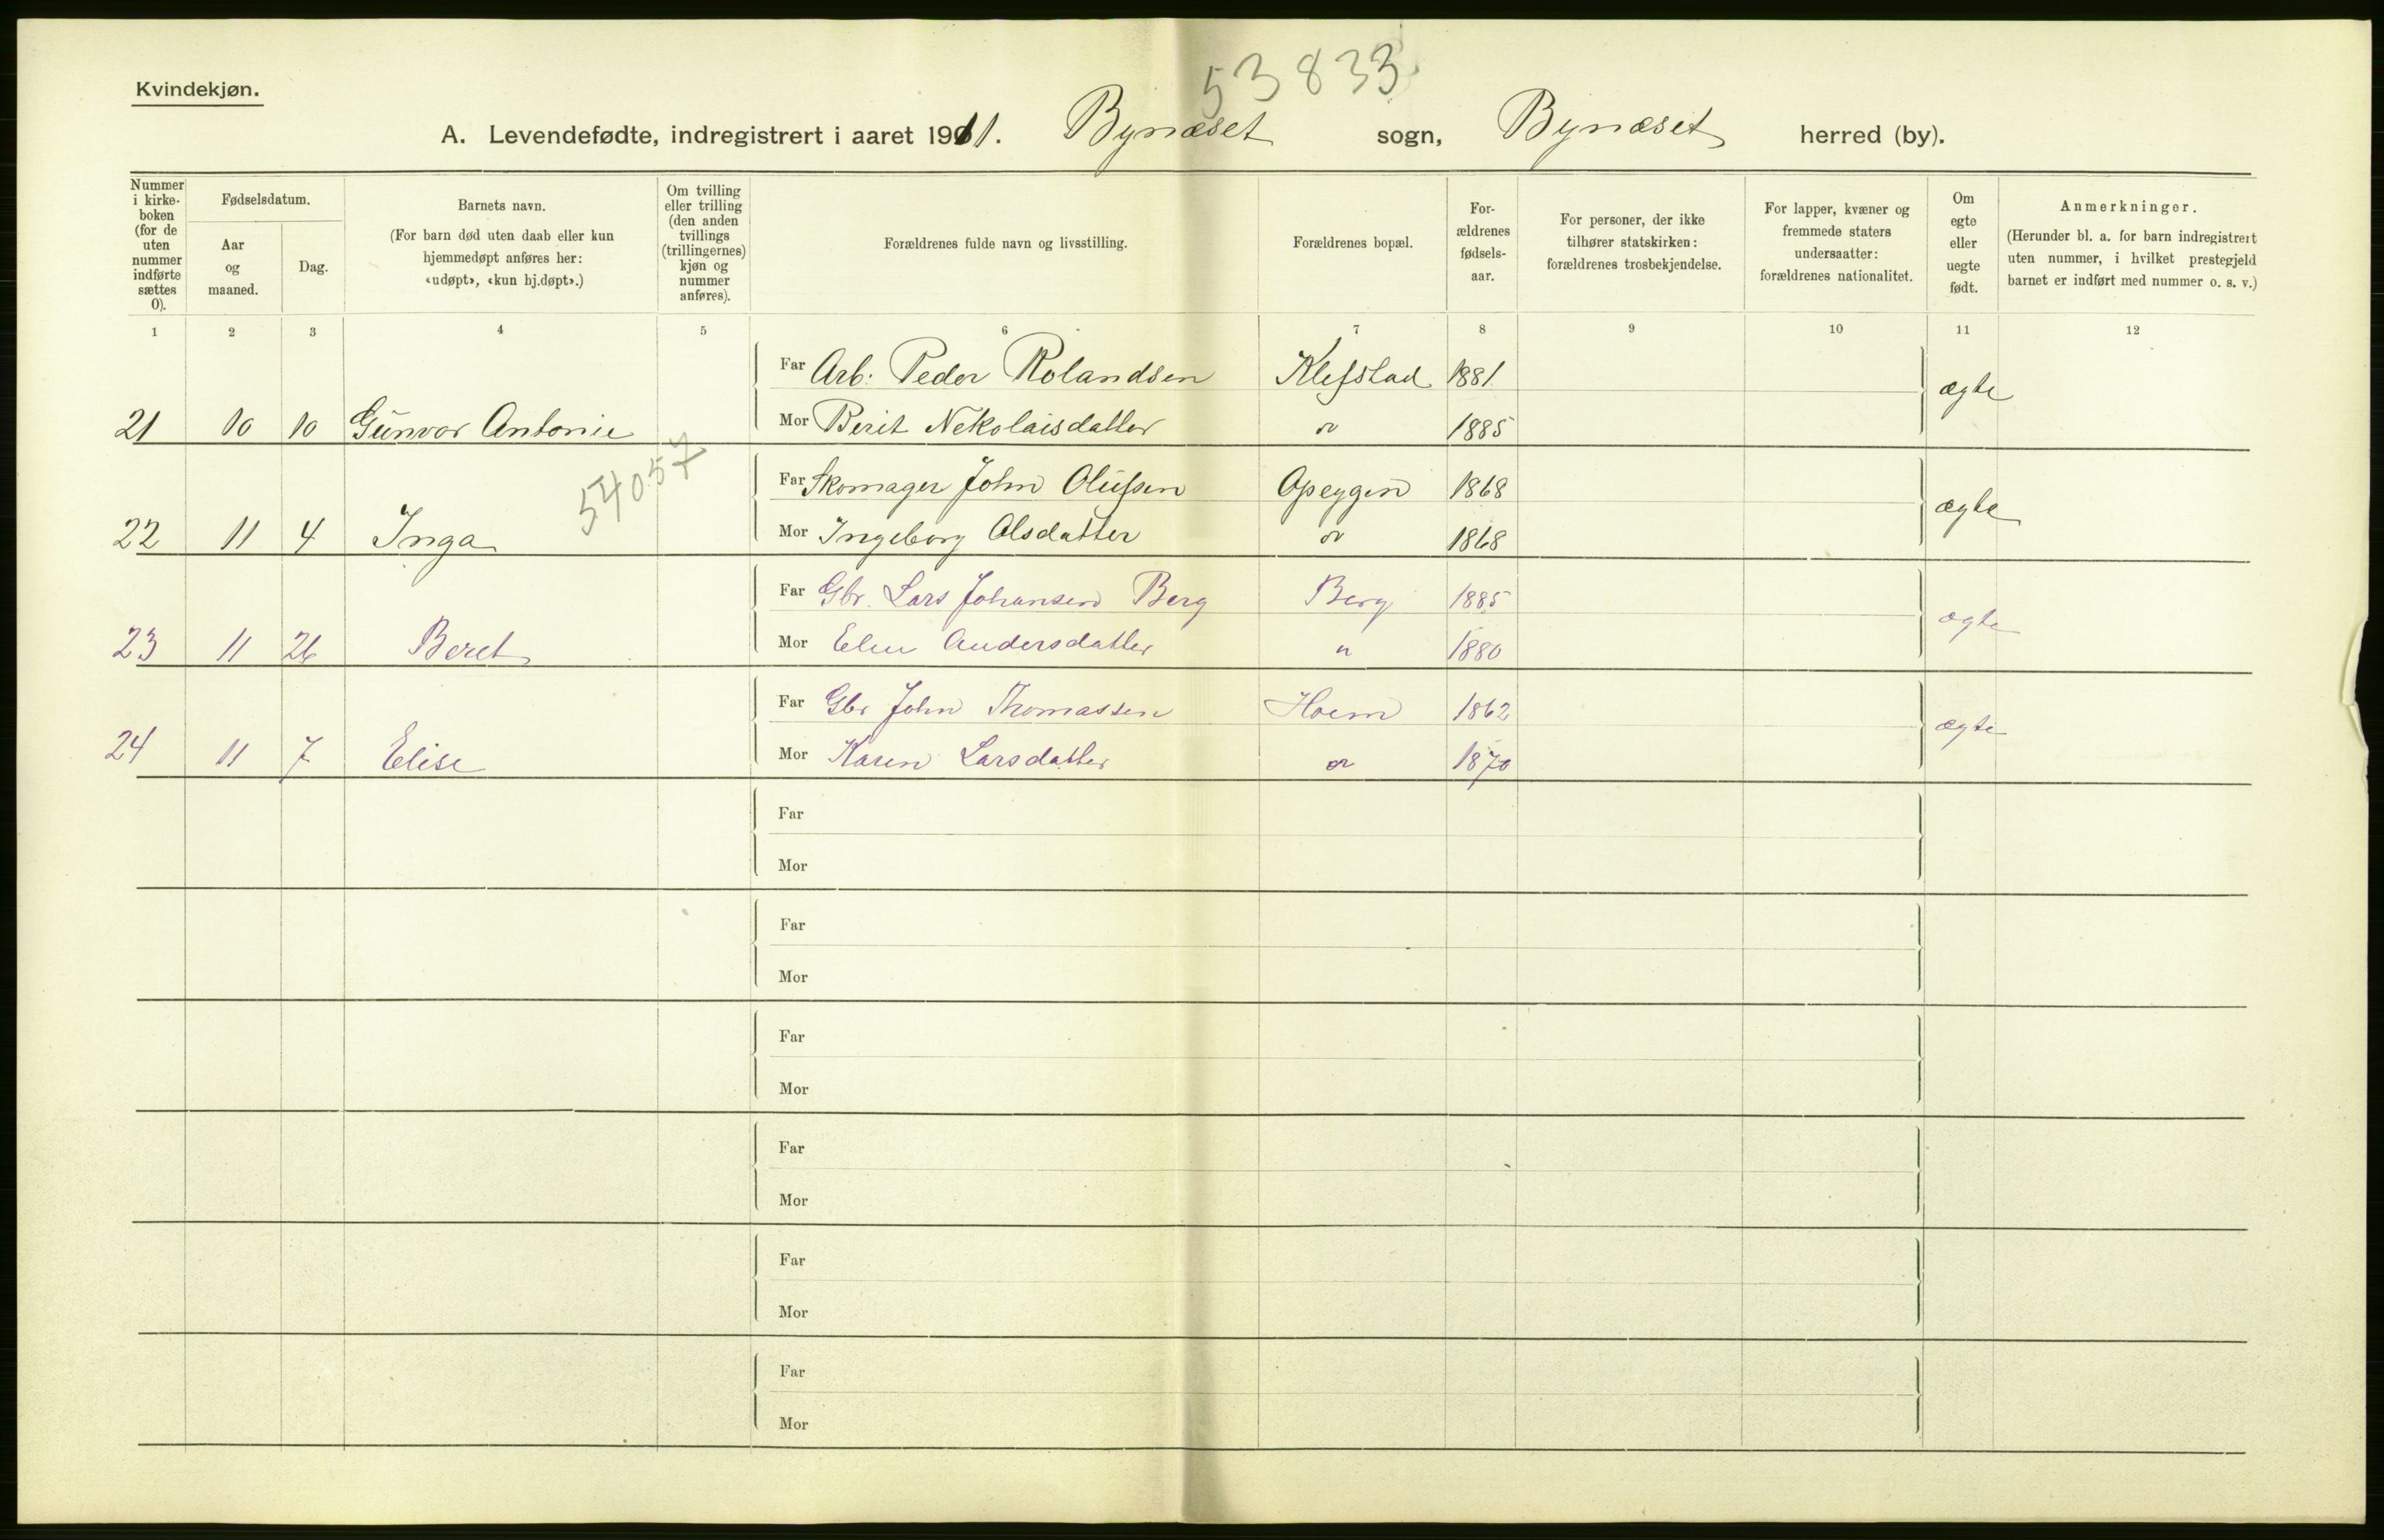 53833
Kvindekjøn.
A. Levendefødte, indregistrert i aaret 1911. Bynæset sogn, Bynæset herred (by).
Nummer
i kirke-
boken
(for de
uten
nummer
indførte
sættes
0).
Fødselsdatum.
Aar
og
maaned.
Dag.
Barnets navn.
(For barn død uten daab eller kun
hjemmedøpt anføres her:
«udøpt», «kun hj.døpt».)
Om tvilling
eller trilling
(den anden
tvillings
(trillingernes)
kjøn og
nummer
anføres).
Forældrenes fulde navn og livsstilling.
Forældrenes bopæl.
For-
ældrenes
fødsels-
aar.
For personer, der ikke
tilhører statskirken:
forældrenes trosbekjendelse.
For lapper, kvæner og
fremmede staters
undersaatter:
forældrenes nationalitet.
Om
egte
eller
uegte
født.
Anmerkninger.
(Herunder bl. a. for barn indregistrert
uten nummer, i hvilket prestegjeld
barnet er indført med nummer o. s. v.)
1 2 3 4 5 6 7 8 9 10 11 12
Far Arb: Peder Rolandsen Klefstad 1881 ægte
21 10 10 Gunvor Antonie Mor Berit Nekolaisdatter 1885
54057
Far Skomager John Olufsen 1868 ægte
22 11 4 Inga Mor Ingeborg Olsdatter 1868
Far Gbr. Lars Johansen Berg Berg 1885 ægte
23 11 26 Beret Mor Elen Andersdatter " 1880
Far Gbr John Thomassen Hoem 1862 ægte
24 11 7 Elise Mor Karen Larsdatter 1870
Far
Mor
Far
Mor
Far
Mor
Far
Mor
Far
Mor
Far
Mor